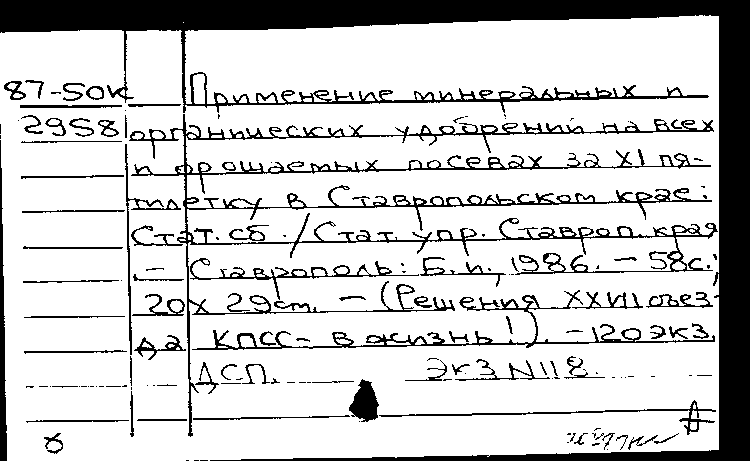 87-50к Применение минеральных и
2958 органических удобрений на всех
и орошаемых посевах за XI пя-
тилетку в Ставропольском крае:
Стат. сб. / Стат. упр. Ставроп. края
.- Ставрополь: Б.и., 1986. - 58с.;
20х29cm. - (Решения XXVII съез-
да КПСС - в жизнь!). - 120 экз.
ДСП. Экз N118.